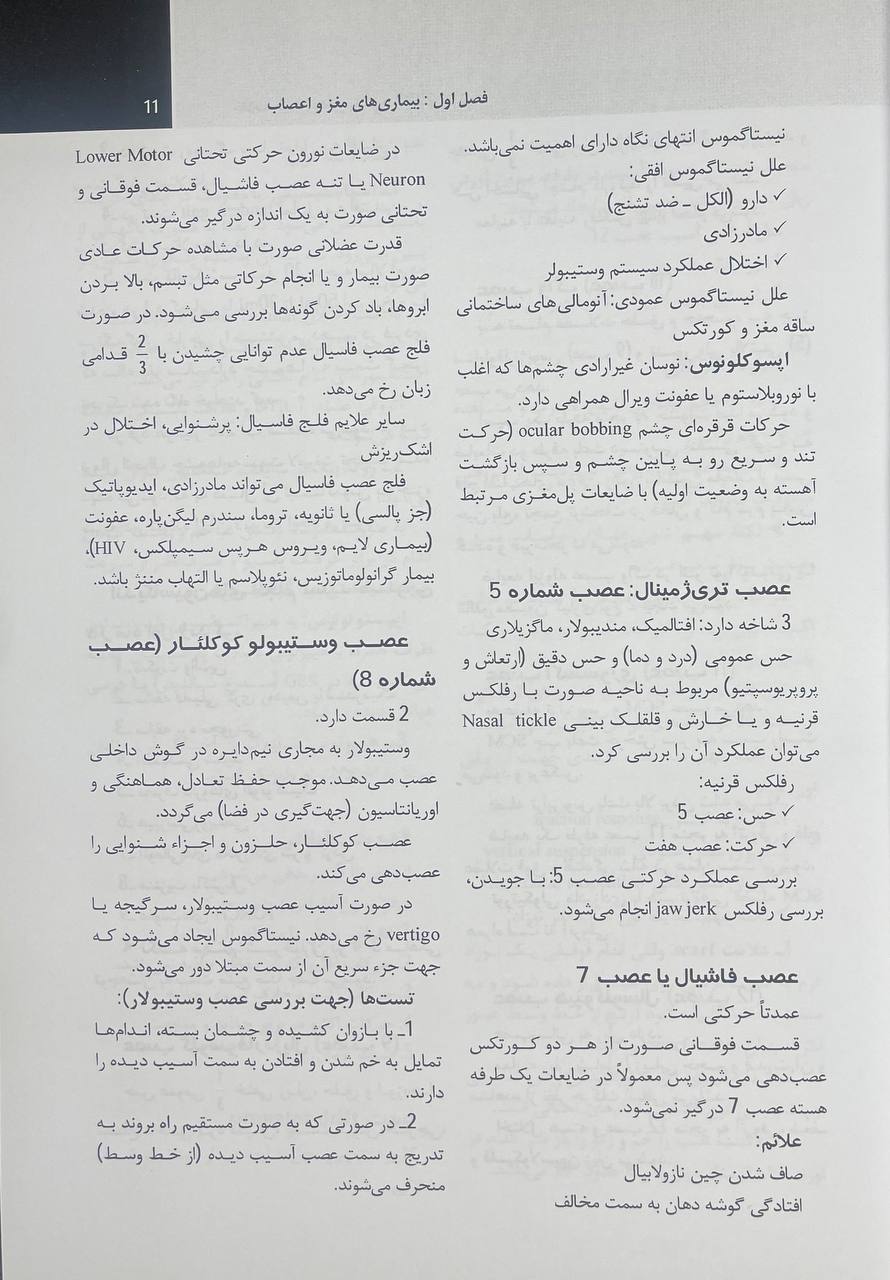 فصل اول : بیماری‌های مغز و اعصاب
11
نیستاگموس انتهای نگاه دارای اهمیت نمی‌باشد.
علل نیستاگموس افقی:
✓ دارو (الکل ـ ضد تشنج)
✓ مادرزادی
✓ اختلال عملکرد سیستم وستیبولر
علل نیستاگموس عمودی: آنومالی‌های ساختمانی
ساقه مغز و کورتکس
اپسوکلونوس: نوسان غیرارادی چشم‌ها که اغلب
با نوروبلاستوم یا عفونت ویرال همراهی دارد.
حرکات قرقره‌ای چشم ocular bobbing (حرکت
تند و سریع رو به پایین چشم و سپس بازگشت
آهسته به وضعیت اولیه) با ضایعات پل‌مغزی مرتبط
است.
عصب تری‌ژمینال: عصب شماره 5
3 شاخه دارد: افتالمیک، مندیبولار، ماگزیلاری
حس عمومی (درد و دما) و حس دقیق (ارتعاش و
پروپریوسپتیو) مربوط به ناحیه صورت با رفلکس
قرنیه و یا خارش و قلقلک بینی Nasal tickle
می‌توان عملکرد آن را بررسی کرد.
رفلکس قرنیه:
✓ حس: عصب 5
✓ حرکت: عصب هفت
بررسی عملکرد حرکتی عصب 5: با جویدن،
بررسی رفلکس jaw jerk انجام می‌شود.
عصب فاشیال یا عصب 7
عمدتاً حرکتی است.
قسمت فوقانی صورت از هر دو کورتکس
عصب‌دهی می‌شود پس معمولاً در ضایعات یک طرفه
هسته عصب 7 درگیر نمی‌شود.
علائم:
صاف شدن چین نازولابیال
افتادگی گوشه دهان به سمت مخالف
در ضایعات نورون حرکتی تحتانی Lower Motor
Neuron یا تنه عصب فاشیال، قسمت فوقانی و
تحتانی صورت به یک اندازه درگیر می‌شوند.
قدرت عضلانی صورت با مشاهده حرکات عادی
صورت بیمار و یا انجام حرکاتی مثل تبسم، بالا بردن
ابروها، باد کردن گونه‌ها بررسی می‌شود. در صورت
فلج عصب فاسیال عدم توانایی چشیدن با 2/3 قدامی
زبان رخ می‌دهد.
سایر علایم فلج فاسیال: پرشنوایی، اختلال در
اشک‌ریزش
فلج عصب فاسیال می‌تواند مادرزادی، ایدیوپاتیک
(جز پالسی) یا ثانویه، تروما، سندرم لیگن‌پاره، عفونت
(بیماری لایم، ویروس هرپس سیمپلکس، HIV)،
بیمار گرانولوماتوزیس، نئوپلاسم یا التهاب مننژ باشد.
عصب وستیبولو کوکلئار (عصب
شماره 8)
2 قسمت دارد.
وستیبولار به مجاری نیم‌دایره در گوش داخلی
عصب می‌دهد. موجب حفظ تعادل، هماهنگی و
اوریانتاسیون (جهت‌گیری در فضا) می‌گردد.
عصب کوکلئار، حلزون و اجزاء شنوایی را
عصب‌دهی می‌کند.
در صورت آسیب عصب وستیبولار، سرگیجه یا
vertigo رخ می‌دهد. نیستاگموس ایجاد می‌شود که
جهت جزء سریع آن از سمت مبتلا دور می‌شود.
تست‌ها (جهت بررسی عصب وستیبولار):
1ـ با بازوان کشیده و چشمان بسته، اندام‌ها
تمایل به خم شدن و افتادن به سمت آسیب دیده را
دارند.
2ـ در صورتی که به صورت مستقیم راه بروند به
تدریج به سمت عصب آسیب دیده (از خط وسط)
منحرف می‌شوند.